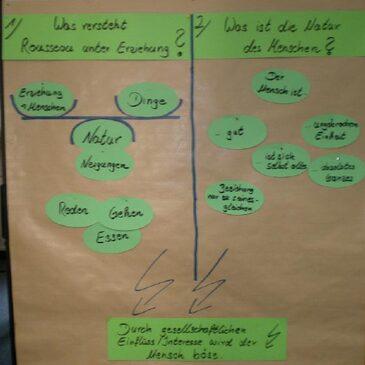 1) Was versteht
Rousseau unter Erziehung?
Erziehung
Menschen
Dinge
Natur
Neigungen
Reden
Gehen
Essen
2) Was ist die Natur
des Menschen?
Der
Mensch ist...
... gut
... ungebrochene
Einheit
ist sich
selbst alles
... absolutes
Ganzes
Beziehung
nur zu seines-
gleichen
Durch gesellschaftlichen
Einfluss/Interesse wird der
Mensch böse.